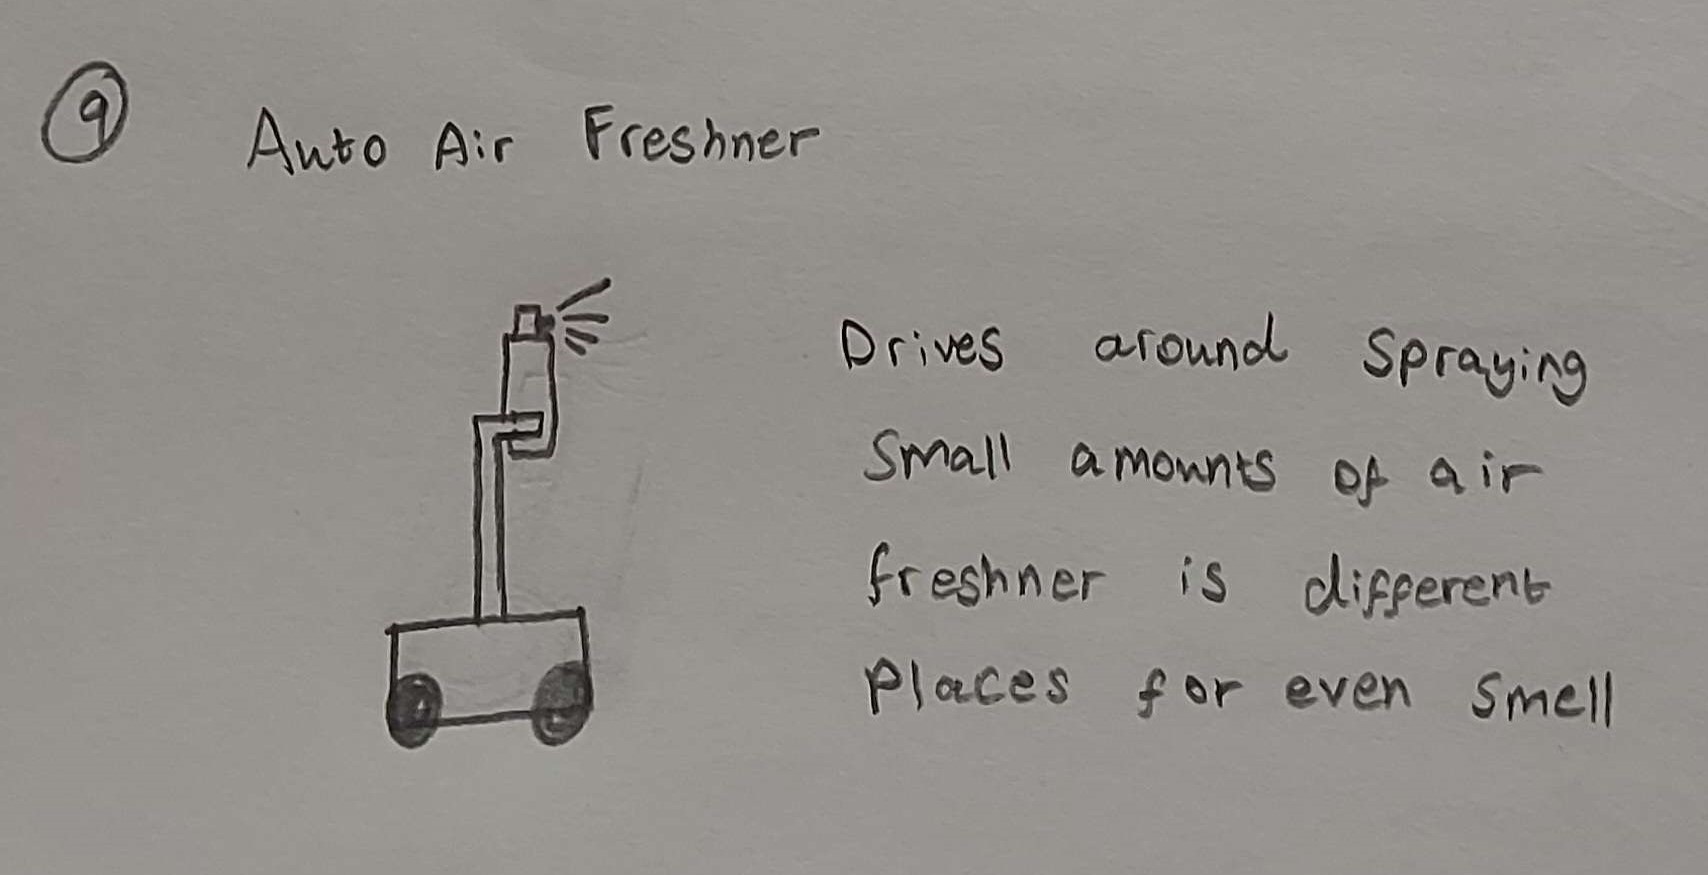 9
Auto Air Freshner
Drives around spraying
small amounts of air
freshner is different
places for even smell